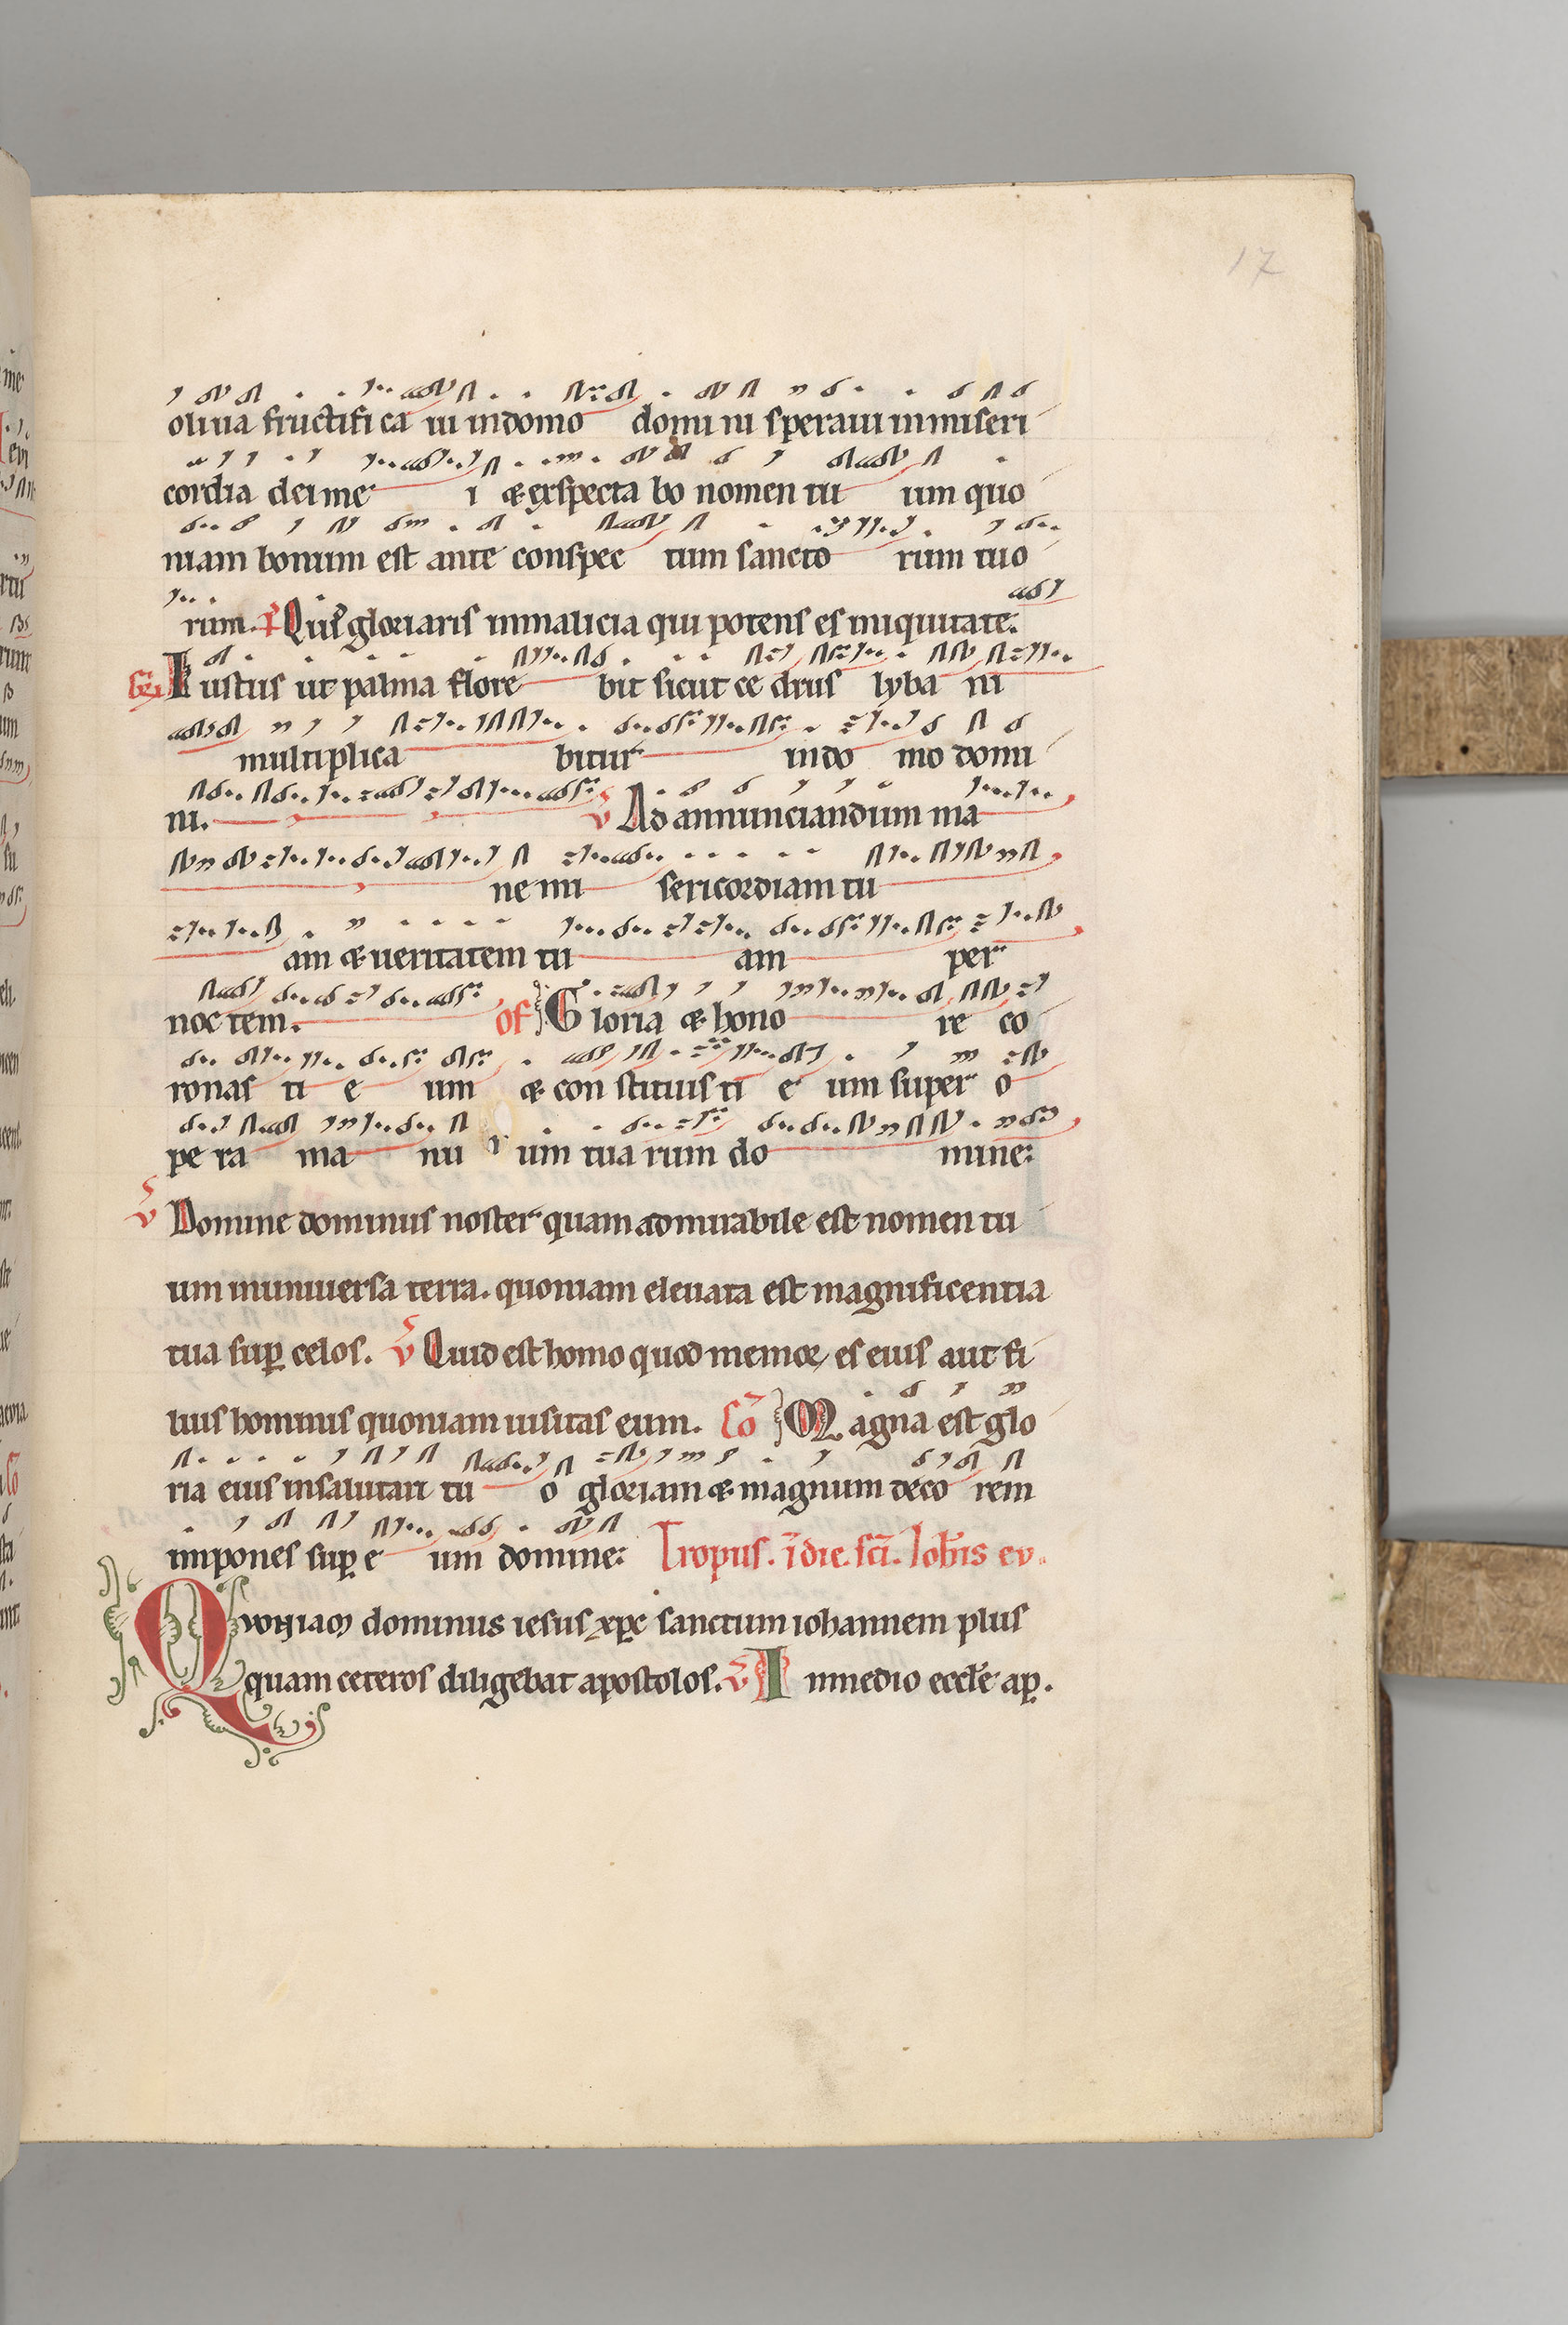 17
oliua fructifi ca ui in domo domi ni speraui in miseri
cordia dei me i & exspecta bo nomen tu um quo
niam bonum est ante conspec tum sancto rum tuo
rum. Quid gloriaris in malicia qui potens es iniquitate.
Iustus ut palma flore bit sicut ce drus lyba ni
multiplica bitur in do mo domi
ni. v Ad annunciandum ma
ne mi sericordiam tu
am & ueritatem tu am per
noc tem. of Gloria & hono re co
ronas ti e um & con stituis ti e um super o
pe ra ma nu um tua rum do mine:
v Domine dominus noster quam admirabile est nomen tu
um in uniuersa terra. quoniam eleuata est magnificentia
tua sup celos. v Quid est homo quod memor es eius aut fi
lius hominis quoniam uisitas eum. Co Magna est glo
ria eius in salutari tu o gloriam & magnum deco rem
impones sup e um domine: Tropus. i die. sci. Iohis ev.
Quoniam dominus iesus xpc sanctum iohannem plus
quam ceteros diligebat apostolos. v In medio eccle ap.